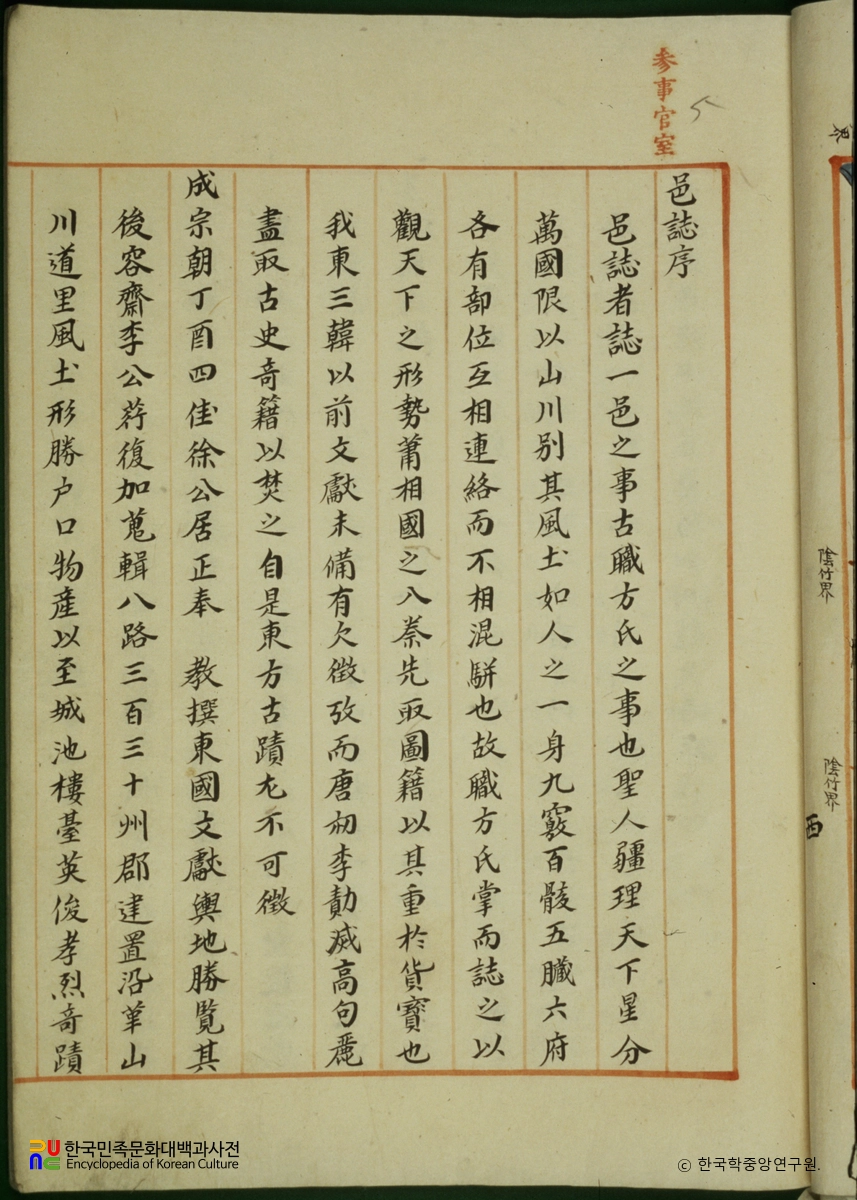 参事官室
邑誌序
邑誌者誌一邑之事古職方氏之事也聖人疆理天下星分
萬國限以山川别其風土如人之一身九竅百骸五臟六府
各有部位互相連絡而不相混騈也故職方氏掌而誌之以
觀天下之形勢蕭相國之入秦先取圖籍以其重於貨寶也
我東三韓以前文獻未備有欠徵攷而唐初李勣滅高句麗
盡取古史奇籍以焚之自是東方古蹟尤不可徵
成宗朝丁酉四佳徐公居正奉 教撰東國文獻輿地勝覧其
後容齋李公荇復加蒐輯八路三百三十州郡建置沿革山
川道里風土形勝户口物產以至城池樓臺英俊孝烈奇蹟
陰竹界
陰竹界
西
한국민족문화대백과사전
Encyclopedia of Korean Culture
© 한국학중앙연구원.